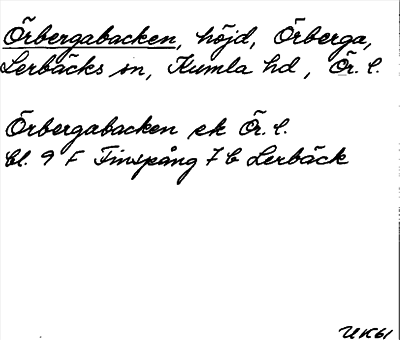 Örbergabacken, höjd, Örberga,
Lerbäcks sn, Kumla hd, Ör. l.
Örbergabacken ek Ör. l.
bl. 9 F Finspång 7 b Lerbäck
UK61